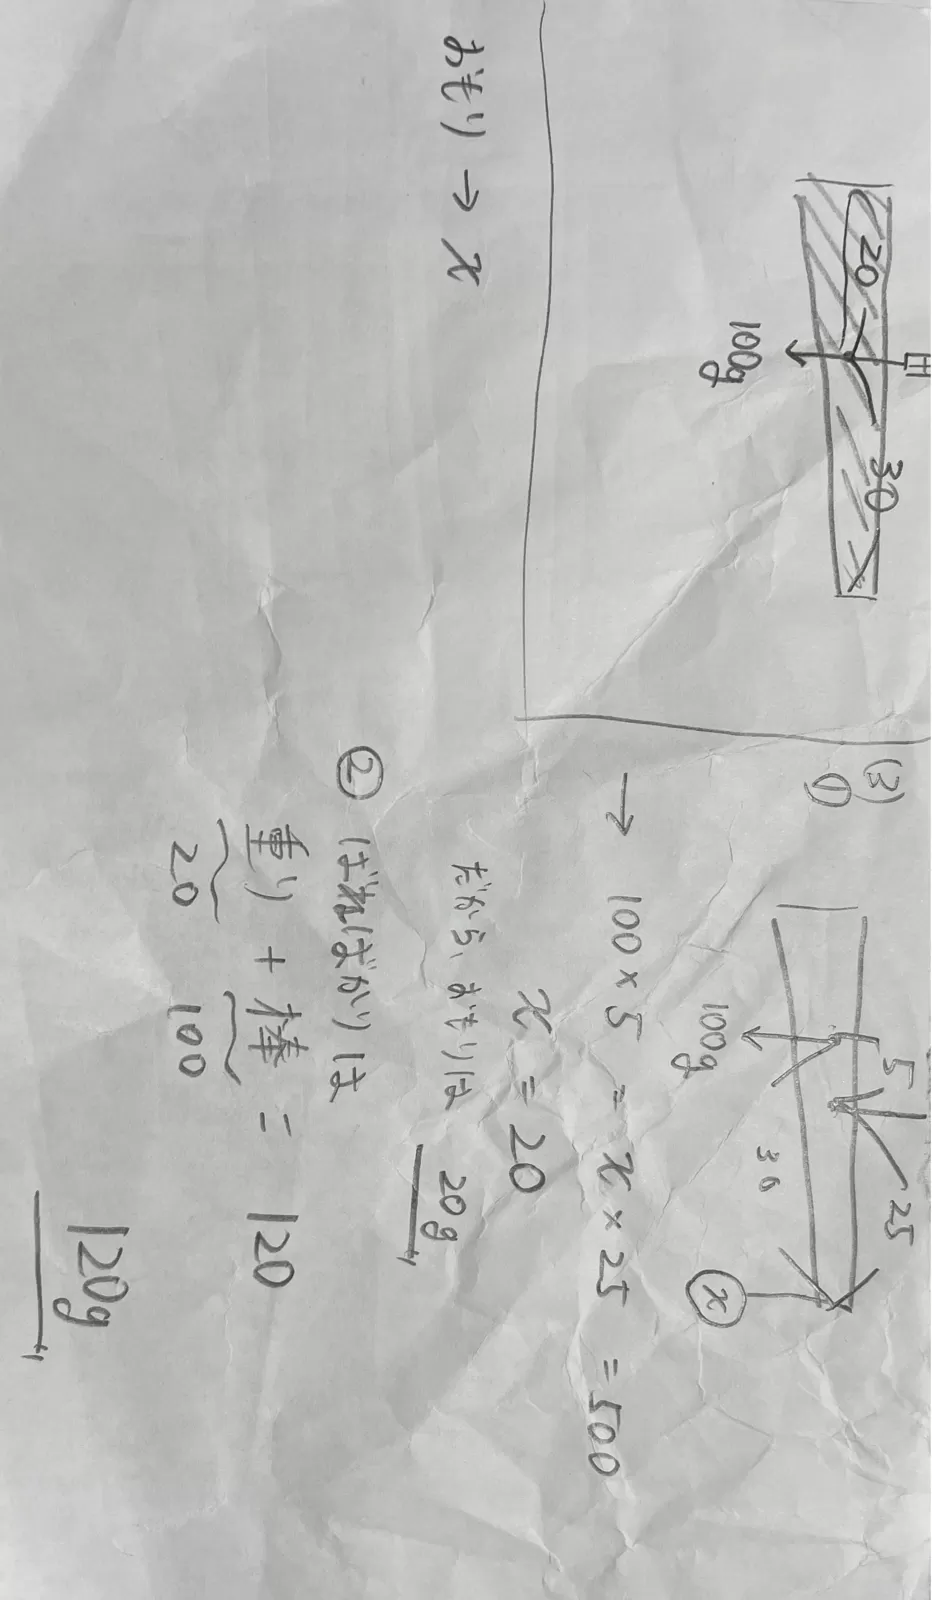 20
30
100g
おもり → x
(3)
①
5
25
100g
30
x
→ 100 × 5 = x × 25 = 500
x = 20
だから、おもりは 20g
② ばねばかりは
重り + 棒 = 120
20 100
120g